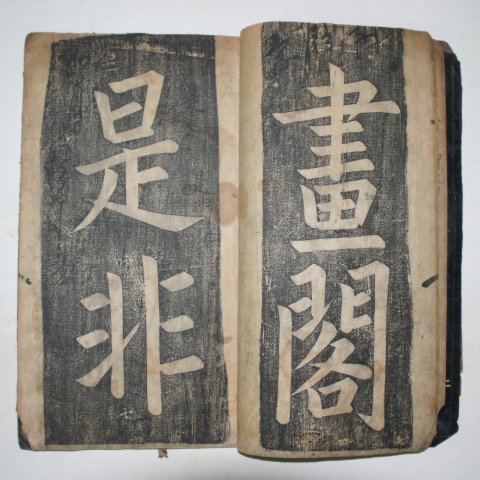 畫閣
是非
七